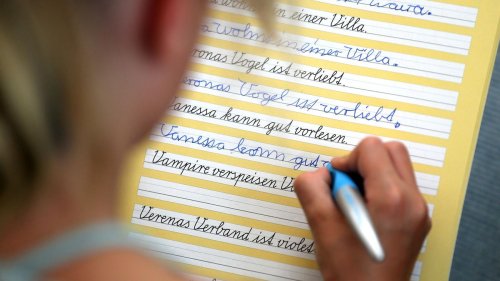 in einer Villa.
wohnt in einer Villa.
ronas Vogel ist verliebt.
eronas Vogel ist verliebt.
anessa kann gut vorlesen.
Vanessa kann gut
Vampire verspeisen V
Verenas Verband ist violet